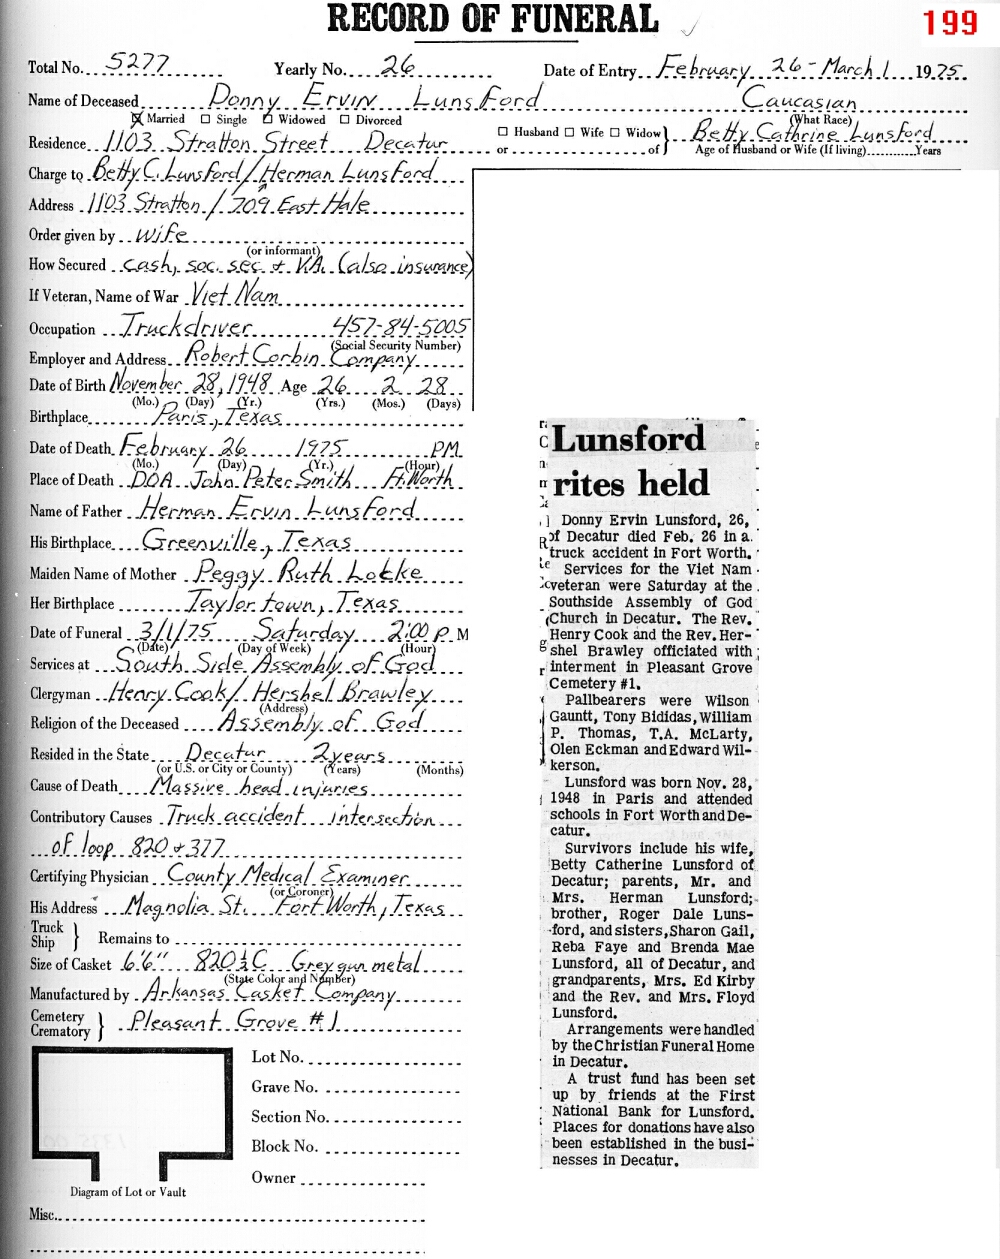 RECORD OF FUNERAL
199
Total No. 5277 Yearly No. 26 Date of Entry February 26 - March 1 1975
Name of Deceased Donny Ervin Lunsford Caucasian
(What Race)
☒ Married ☐ Single ☐ Widowed ☐ Divorced
Residence 1103 Stratton Street Decatur ☐ Husband ☐ Wife ☐ Widow or of } Betty Cathrine Lunsford
Age of Husband or Wife (If living) Years
Charge to Betty C. Lunsford / Herman Lunsford
Address 1103 Stratton / 709 East Hale
Order given by wife
(or informant)
How Secured cash, soc. sec + V.A. (also insurance)
If Veteran, Name of War Viet Nam
Occupation Truckdriver 457-84-5005
(Social Security Number)
Employer and Address Robert Corbin Company
Date of Birth November 28, 1948 Age 26 2 28
(Mo.) (Day) (Yr.) (Yrs.) (Mos.) (Days)
Birthplace Paris, Texas
Date of Death February 26 1975 PM
(Mo.) (Day) (Yr.) (Hour)
Place of Death DOA John Peter Smith Ft. Worth
Name of Father Herman Ervin Lunsford
His Birthplace Greenville, Texas
Maiden Name of Mother Peggy Ruth Locke
Her Birthplace Taylor town, Texas
Date of Funeral 3/1/75 Saturday 2:00 P. M
(Date) (Day of Week) (Hour)
Services at South Side Assembly of God
Clergyman Henry Cook / Hershel Brawley
(Address)
Religion of the Deceased Assembly of God
Resided in the State Decatur 2 years
(or U.S. or City or County) (Years) (Months)
Cause of Death Massive head injuries
Contributory Causes Truck accident intersection
of loop 820 + 377
Certifying Physician County Medical Examiner
(or Coroner)
His Address Magnolia St. Fort Worth, Texas
Truck
Ship } Remains to
Size of Casket 6'6" 820½C Grey gun metal
(State Color and Number)
Manufactured by Arkansas Casket Company
Cemetery
Crematory } Pleasant Grove #1
Lot No.
Grave No.
Section No.
Block No.
Owner
Diagram of Lot or Vault
Misc.
Lunsford
rites held
Donny Ervin Lunsford, 26,
of Decatur died Feb. 26 in a
truck accident in Fort Worth.
Services for the Viet Nam
veteran were Saturday at the
Southside Assembly of God
Church in Decatur. The Rev.
Henry Cook and the Rev. Her-
shel Brawley officiated with
interment in Pleasant Grove
Cemetery #1.
Pallbearers were Wilson
Gauntt, Tony Bididas, William
P. Thomas, T.A. McLarty,
Olen Eckman and Edward Wil-
kerson.
Lunsford was born Nov. 28,
1948 in Paris and attended
schools in Fort Worth and De-
catur.
Survivors include his wife,
Betty Catherine Lunsford of
Decatur; parents, Mr. and
Mrs. Herman Lunsford;
brother, Roger Dale Luns-
ford, and sisters, Sharon Gail,
Reba Faye and Brenda Mae
Lunsford, all of Decatur, and
grandparents, Mrs. Ed Kirby
and the Rev. and Mrs. Floyd
Lunsford.
Arrangements were handled
by the Christian Funeral Home
in Decatur.
A trust fund has been set
up by friends at the First
National Bank for Lunsford.
Places for donations have also
been established in the busi-
nesses in Decatur.